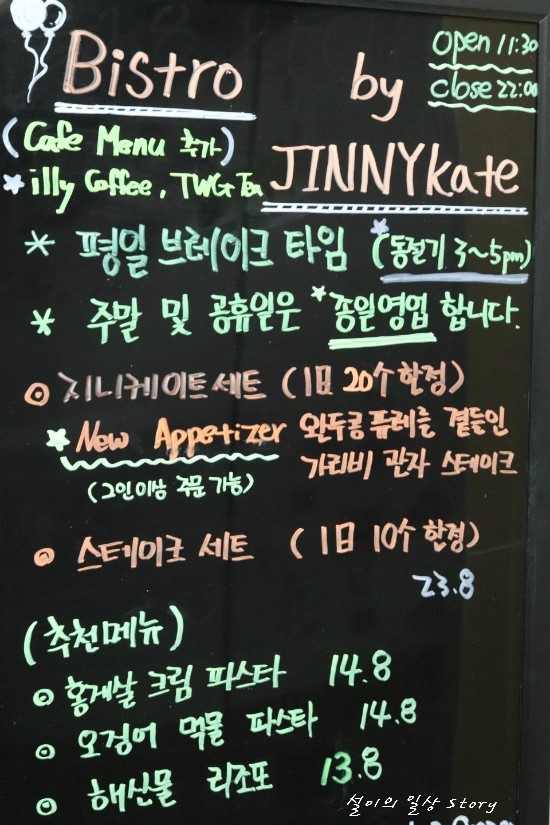 Bistro by
open 11:30
close 22:00
(Cafe Menu 추가)
JINNYkate
* illy Coffee, TWG Tea
* 평일 브레이크 타임 (*동절기 3~5pm)
* 주말 및 공휴일은 *종일영업 합니다.
◎ 지니케이트세트 (1日 20个한정)
* New Appetizer 완두콩퓨레를 곁들인
가리비 관자 스테이크
(2인이상 주문 가능)
◎ 스테이크 세트 (1日 10个 한정)
23.8
(추천메뉴)
◎ 홍게살 크림 파스타 14.8
◎ 오징어 먹물 파스타 14.8
◎ 해산물 리조또 13.8
설이의 일상 Story